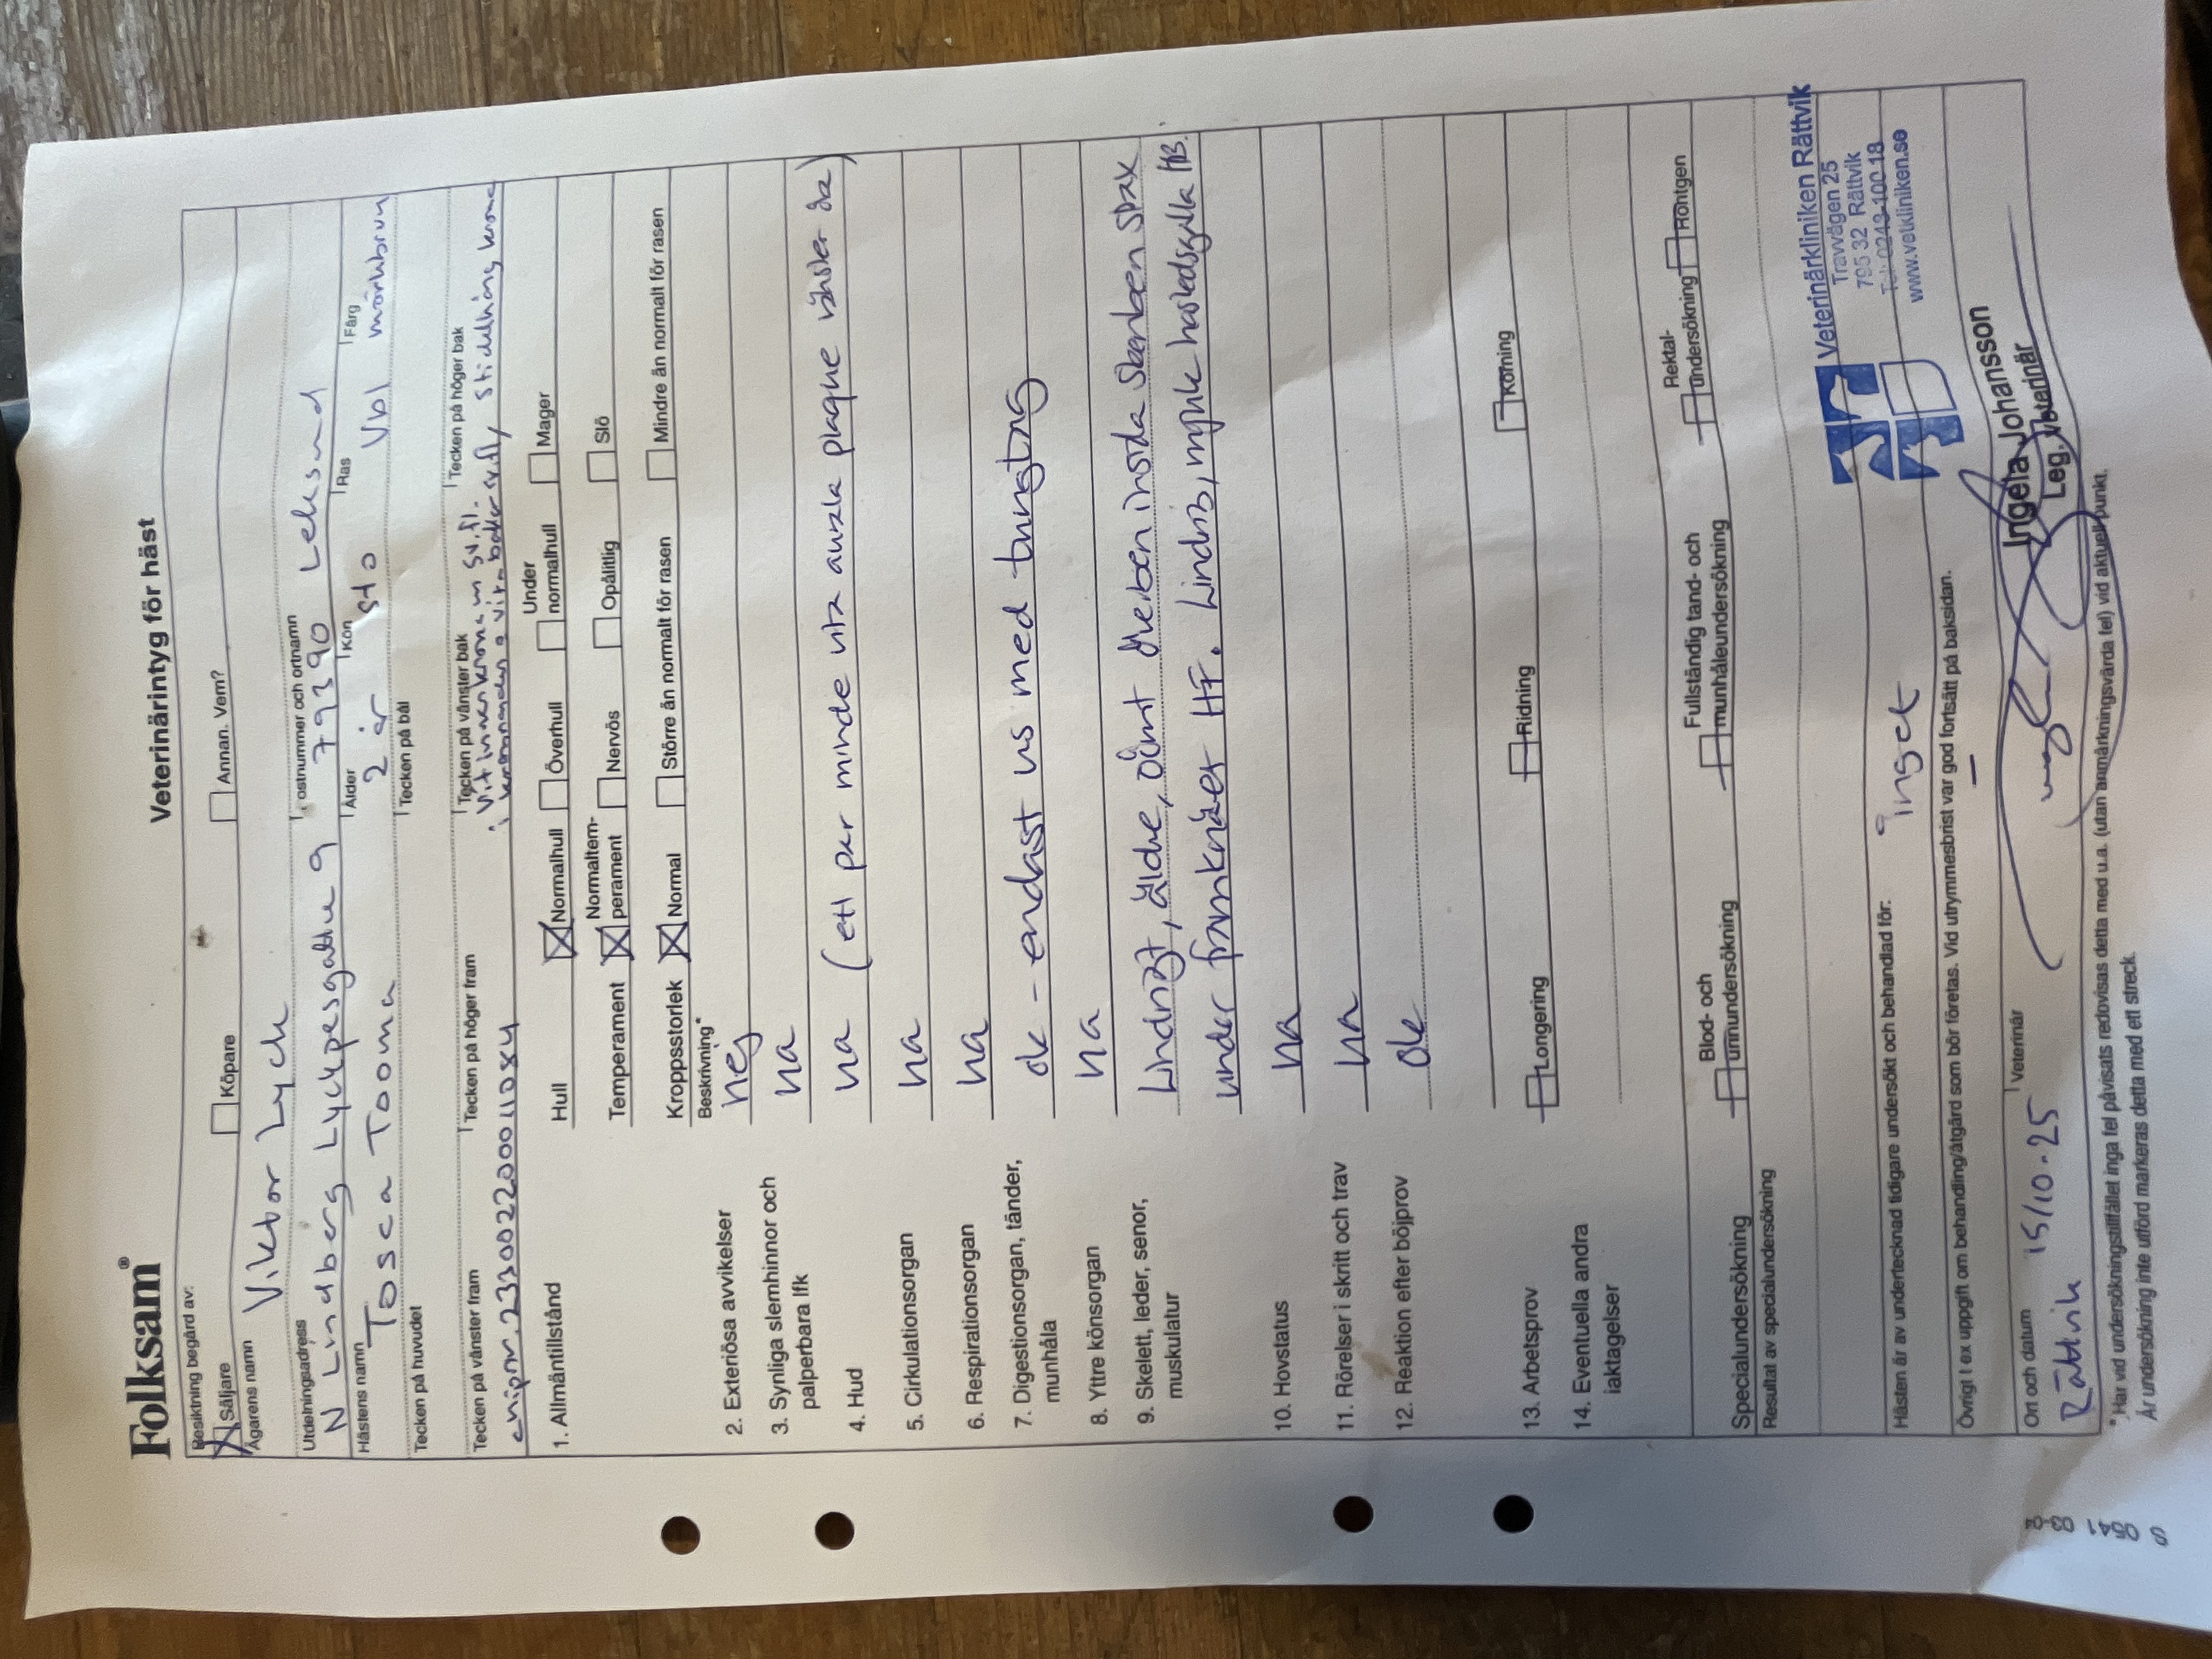 Folksam®
Veterinärintyg för häst
Besiktning begärd av:
Säljare
Köpare
Annan. Vem?
Ägarens namn
Viktor Lych
Utdelningsadress
Postnummer och ortnamn
N Lindberg Lyckpesgattu 9 79390 Leksand
Hästens namn
Ålder
Kön
Ras
Färg
Tosca Tooma 2 år sto Vbl mörkbrun
Tecken på huvudet
Tecken på bål
Tecken på vänster fram
Tecken på höger fram
Tecken på vänster bak
Tecken på höger bak
vit innerkrona m sv.fl.
chipnr. 233002200011084
stickelhårig krona
1. Allmäntillstånd
Hull
Normalhull
Överhull
Under normalhull
Mager
Temperament
Normaltem-
perament
Nervös
Opålitlig
Slö
Kroppsstorlek
Normal
Större än normalt för rasen
Mindre än normalt för rasen
Beskrivning*
2. Exteriösa avvikelser
nej
3. Synliga slemhinnor och
palperbara lfk
na
4. Hud
na (ett par mindre vita aurala plaque vänster öra)
5. Cirkulationsorgan
na
6. Respirationsorgan
na
7. Digestionsorgan, tänder,
munhåla
ok - endast us med tungtag
8. Yttre könsorgan
na
9. Skelett, leder, senor,
muskulatur
Lindrigt, äldre, oömt överben insida skenben strax
under framknäet HF. Lindrig, mjuk hasledsgalla HB.
10. Hovstatus
na
11. Rörelser i skritt och trav
na
12. Reaktion efter böjprov
ok
13. Arbetsprov
Longering
Ridning
Körning
14. Eventuella andra
iakttagelser
Specialundersökning
Blod- och
urinundersökning
Fullständig tand- och
munhåleundersökning
Rektal-
undersökning
Röntgen
Resultat av specialundersökning
Veterinärkliniken Rättvik
Travvägen 25
795 32 Rättvik
Tel: 0248-100 18
www.vetkliniken.se
Hästen är av undertecknad tidigare undersökt och behandlad för:
inget
Övrigt t ex uppgift om behandling/åtgärd som bör företas. Vid utrymmesbrist var god fortsätt på baksidan.
–
Ort och datum
Veterinär
Rättvik 15/10-25
Ingela Johansson
Leg. Veterinär
* Har vid undersökningstillfället inga fel påvisats redovisas detta med u.a. (utan anmärkningsvärda fel) vid aktuell punkt.
Är undersökning inte utförd markeras detta med ett streck.